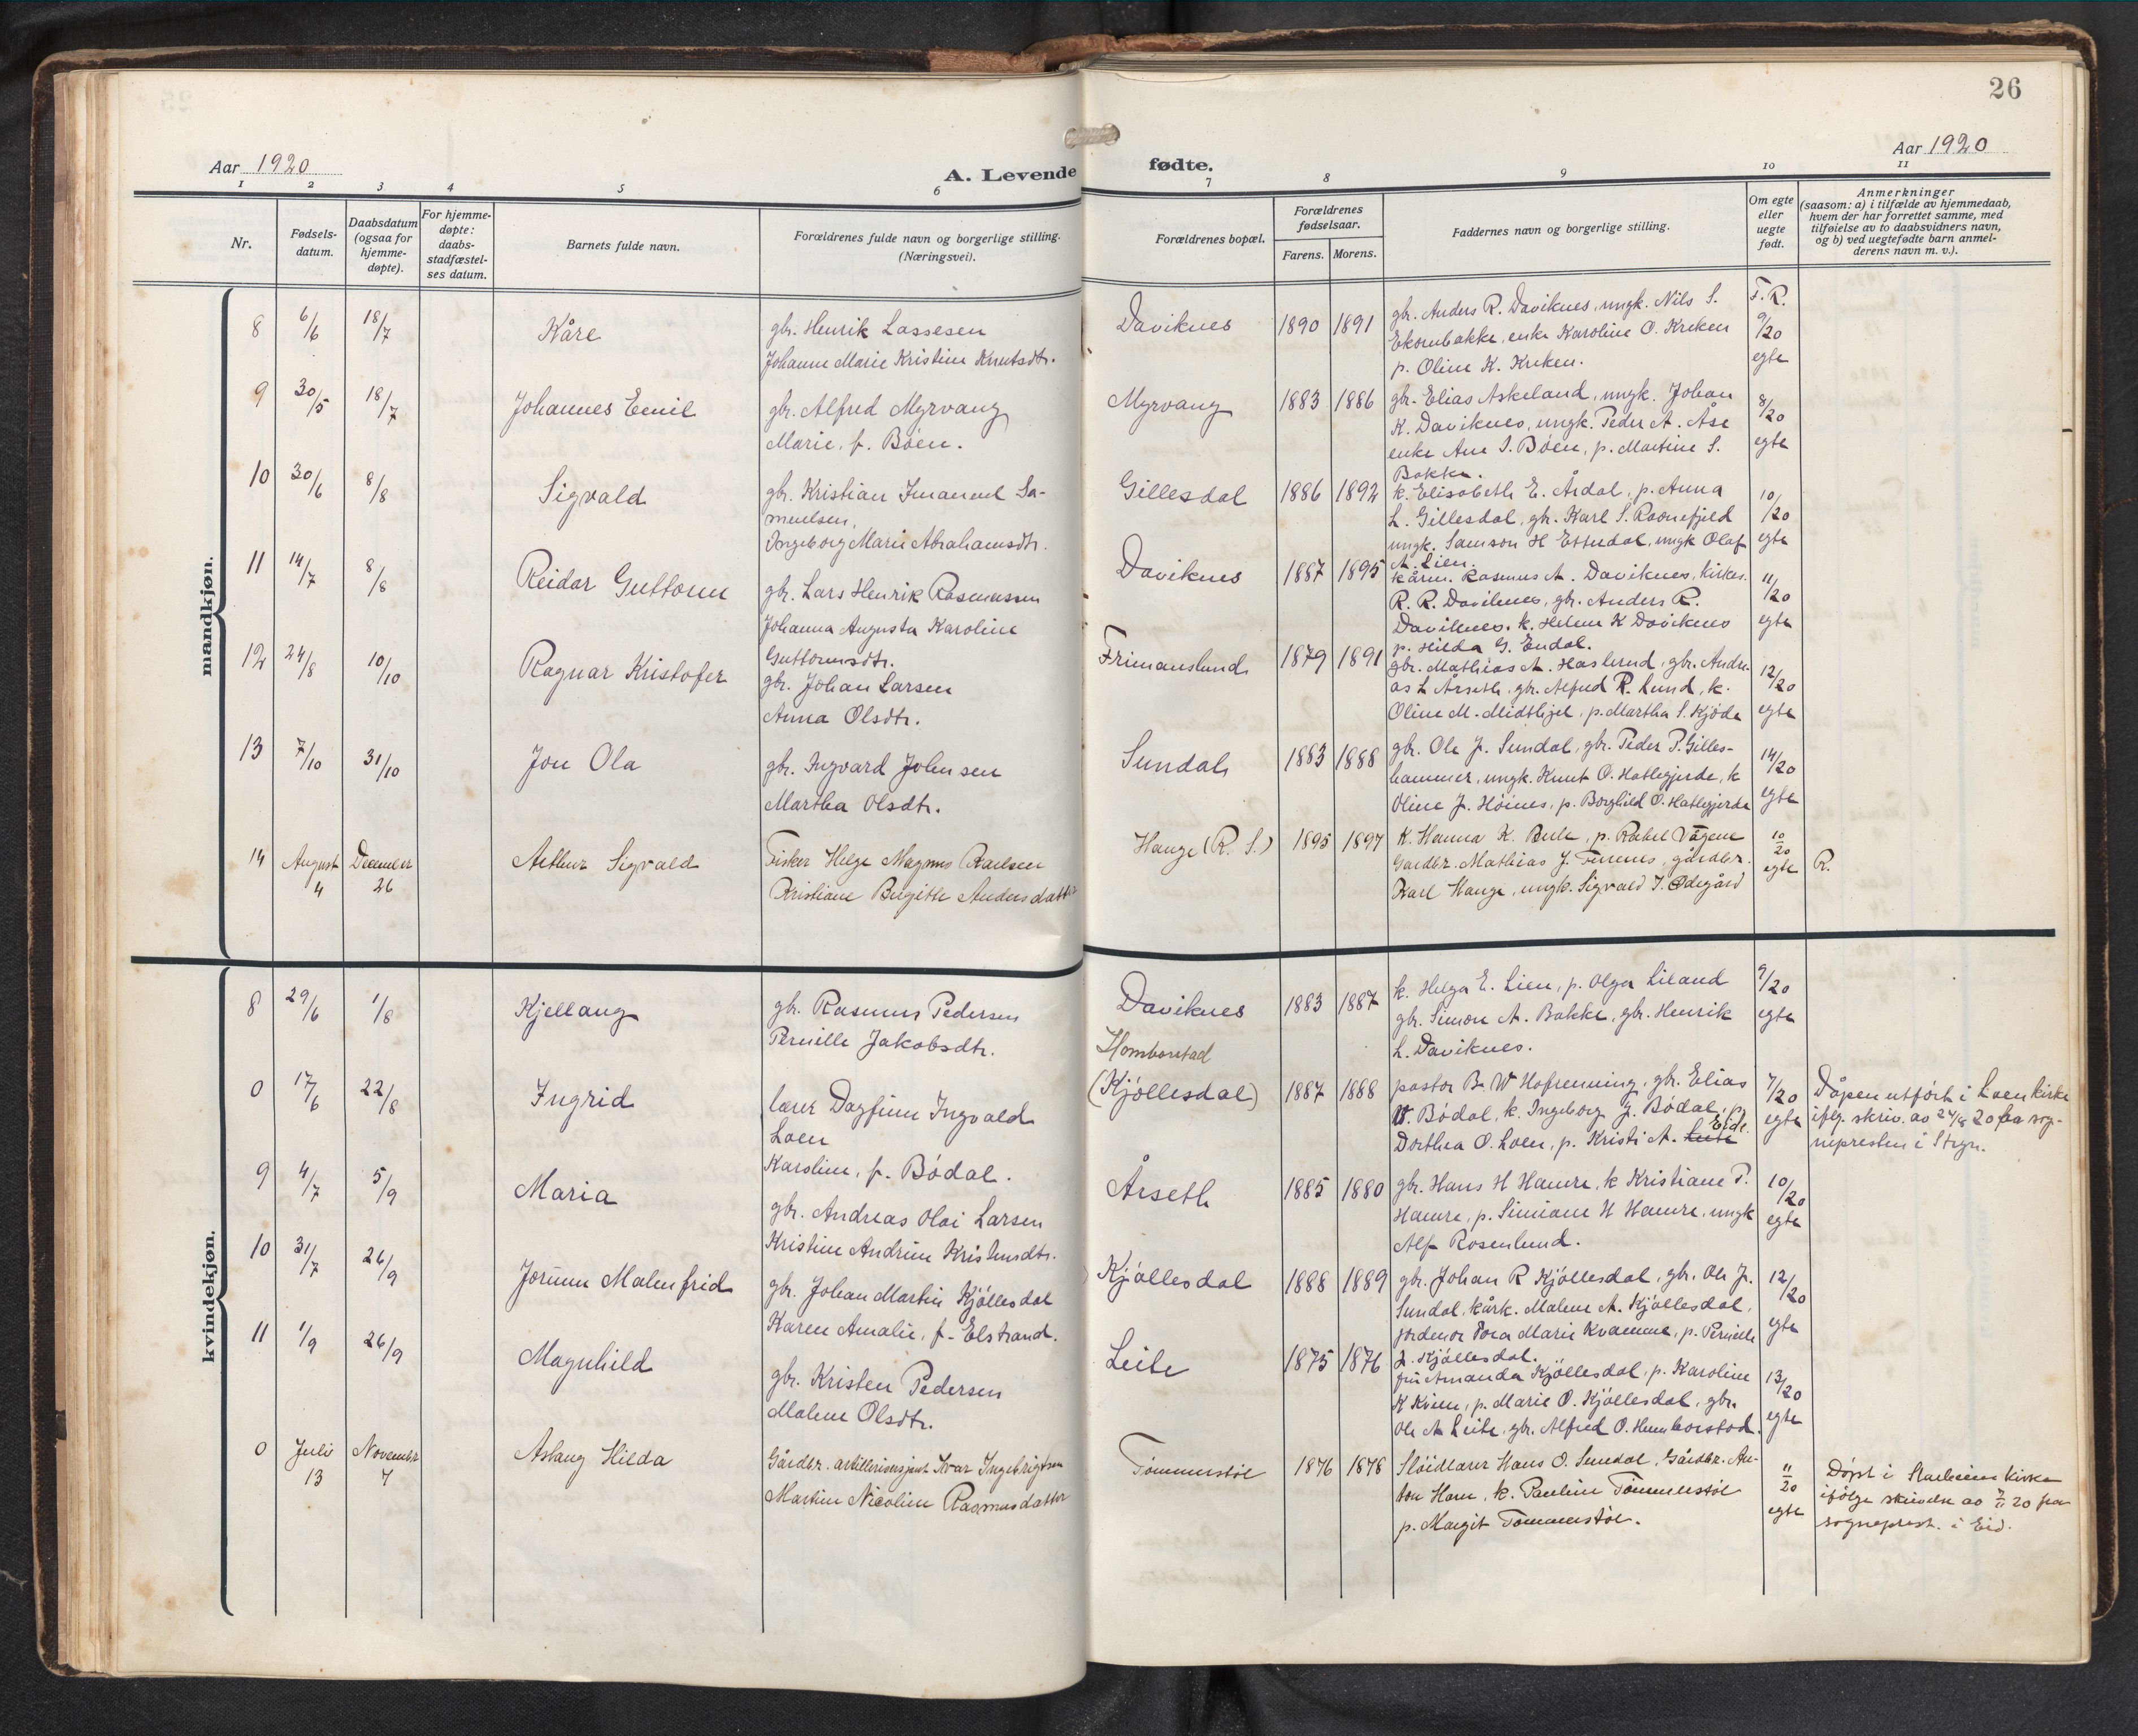 26
Aar 1920
A. Levende fødte.
Aar 1920
1 2 3 4 5 6 7 8 9 10 11
Nr.
Fødsels-
datum.
Daabsdatum
(ogsaa for
hjemme-
døpte).
For hjemme-
døpte:
daabs-
stadfæstel-
ses datum.
Barnets fulde navn.
Forældrenes fulde navn og borgerlige stilling.
(Næringsvei).
Forældrenes bopæl.
Forældrenes
fødselsaar.
Farens. Morens.
Faddernes navn og borgerlige stilling.
Om egte
eller
uegte
født.
Anmerkninger
(saasom: a) i tilfælde av hjemmedaab,
hvem der har forrettet samme, med
tilføielse av to daabsvidners navn,
og b) ved uegtefødte barn anmel-
derens navn m. v.).
mandkjøn.
8 6/6 18/7 Kåre
gbr. Henrik Lassesen
Johanne Marie Kristine Knutsdtr.
Daviknes 1890 1891
gbr. Anders R. Daviknes, ungk. Nils S.
Ekornbakke, enke Karoline O. Kreken
p. Oline K. Kreken.
F. R.
9/20
egte
9 30/5 18/7 Johannes Emil
gbr. Alfred Myrvang
Marie, f. Bøen.
Myrvang 1883 1886
gbr. Elias Askeland, ungk. Johan
K. Daviknes, ungk. Peder A. Åse
enke Ane S. Bøen, p. Martine S.
Bakke.
8/20
egte
10 30/6 8/8 Sigvald
gbr. Kristian Imanuel Sa-
muelsen,
Ingeborg Marie Abrahamsdtr.
Gillesdal 1886 1892
k. Elisabeth E. Årdal, p. Anna
L. Gillesdal, gbr. Karl S. Ravnefjeld
ungk. Samson H Ettedal, ungk Olaf
A. Lien.
10/20
egte
11 14/7 8/8 Reidar Guttorm
gbr. Lars Henrik Rasmussen
Johanna Augusta Karoline
Guttormsdtr.
Daviknes 1887 1895
kårm. Rasmus A. Daviknes, kirkes.
R. R. Daviknes, gbr. Anders R.
Daviknes, k. Helene K Daviknes
p. Hilda G. Endal.
11/20
egte
12 24/8 10/10 Ragnar Kristofer
gbr. Johan Larsen
Anna Olsdtr.
Frimanslund 1879 1891
gbr. Mathias A. Haslund, gbr. Andre-
as L Årseth, gbr. Alfred R. Lund, k.
Oline M. Midthjel, p. Martha S. Kjøde
12/20
egte
13 7/10 31/10 Jon Ola
gbr. Ingvard Johnsen
Martha Olsdtr.
Sundal 1883 1888
gbr. Ole J. Sundal, gbr. Peder P. Gilles-
hammer, ungk. Knut O. Hatlegjerde, k
Oline J. Høines, p. Borghild O. Hatlegjerde
14/20
egte
14 August 4 December 26 Arthur Sigvald
Fisker Helge Magnus Karlsen
Kristiane Birgitte Andersdatter
Hauge (R. S.) 1895 1897
K. Hanna K. Berle, p. Rakel Vågene
Gardbr. Mathias J. Finnes, gårdbr.
Karl Hauge, ungk. Sigvald J. Ødegård
10/20
egte
R.
kvindekjøn.
8 29/6 1/8 Kjellaug
gbr. Rasmus Pedersen
Pernille Jakobsdtr.
Daviknes 1883 1887
k. Helga E. Lien, p. Olga Liland
gbr. Simon A. Bakke, gbr. Henrik
L. Daviknes.
9/20
egte
0 17/6 22/8 Ingrid
lærer Dagfinn Ingvald
Loen
Karoline, f. Bødal.
Homborstad
(Kjøllesdal) 1887 1888
pastor B. W Hofrenning, gbr. Elias
W. Bødal, k. Ingeborg J. Bødal, p.
Dorthea O. Loen, p. Kristi A. Eide.
7/20
egte
Dåpen utført i Loen kirke
iflg. skriv. av 24/8 20 fra sog-
nepresten i Stryn.
9 4/7 5/9 Maria
gbr. Andreas Olai Larsen
Kristine Andrine Kristensdtr.
Årseth 1885 1880
gbr. Hans H Hamre, k Kristiane P.
Hamre, p. Simiane H Hamre, ungk
Alf Rosenlund.
10/20
egte
10 31/7 26/9 Jorunn Malenfrid
gbr. Johan Martin Kjøllesdal
Karen Amalie, f. Elstrand.
Kjøllesdal 1888 1889
gbr. Johan R Kjøllesdal, gbr. Ole J.
Sundal, kårk. Malene A. Kjøllesdal,
jordmor Thea Marie Kvamme, p. Pernille
J. Kjøllesdal.
12/20
egte
11 1/9 26/9 Magnhild
gbr. Kristen Pedersen
Malene Olsdtr.
Leite 1875 1876
frk Amanda Kjøllesdal, p. Karoline
K Kvien, p. Marie O. Kjøllesdal, gbr.
Ole A Leite, gbr. Alfred O. Humborstad.
13/20
egte
0 Juli 13 November 7 Aslaug Hilda
Gårdbr. artillerisersjant Ivar Ingebrigtsen
Martine Nicoline Rasmusdatter
Tømmerstøl 1876 1878
Sløidlærer Hans O. Sundal, Gårdbr. An-
ton Ham, k. Pauline Tømmerstøl
p. Margit Tømmerstøl.
11/20
egte
Døpt i Starheim kirke
ifølge skrivelse av 7/11 20 fra
sogneprest. i Eid.